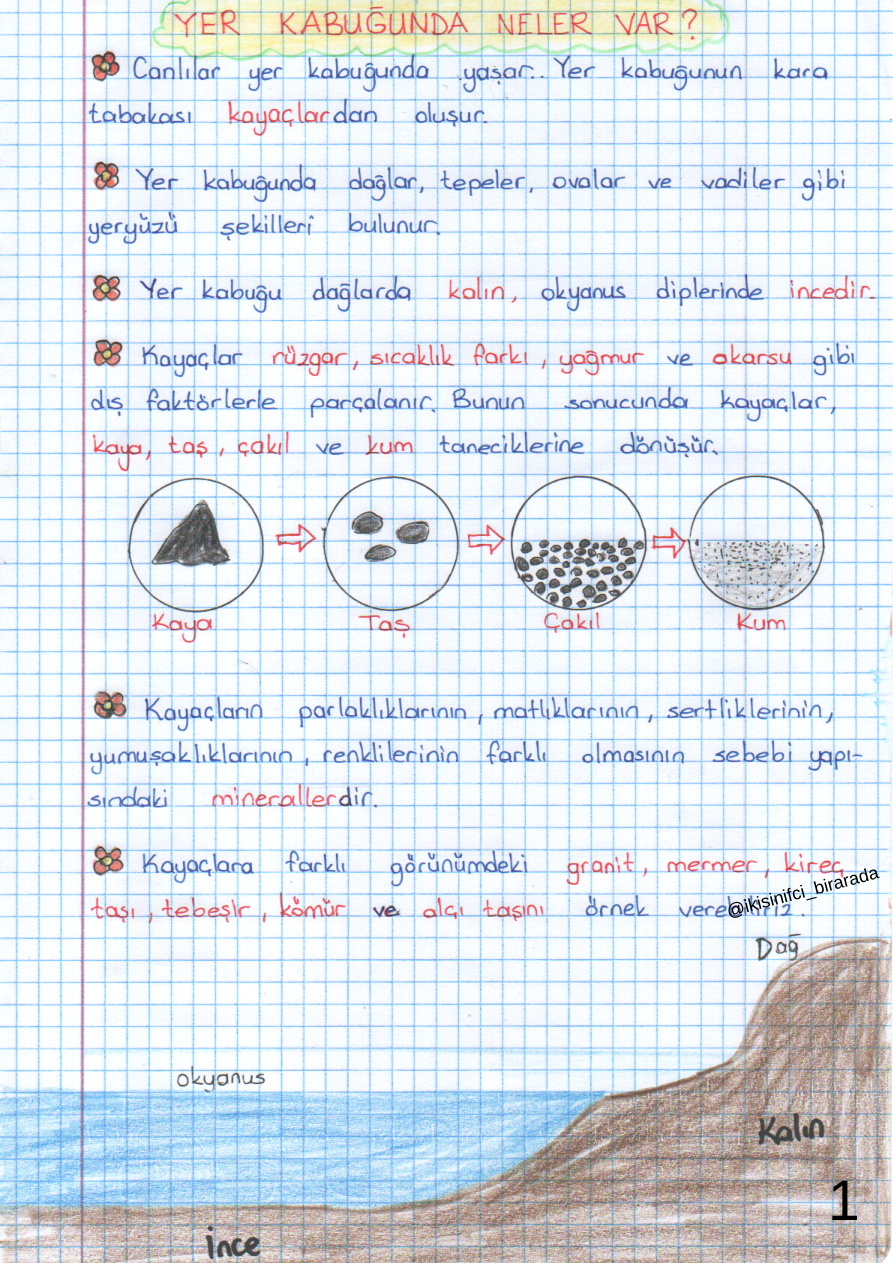 YER KABUĞUNDA NELER VAR?
Canlılar yer kabuğunda yaşar.. Yer kabuğunun kara
tabakası kayaçlardan oluşur.
Yer kabuğunda dağlar, tepeler, ovalar ve vadiler gibi
yeryüzü şekilleri bulunur.
Yer kabuğu dağlarda kalın, okyanus diplerinde incedir.
Kayaçlar rüzgar, sıcaklık farkı, yağmur ve akarsu gibi
dış faktörlerle parçalanır. Bunun sonucunda kayaçlar,
kaya, taş, çakıl ve kum taneciklerine dönüşür.
Kaya Taş Çakıl Kum
Kayaçların parlaklıklarının, matlıklarının, sertliklerinin,
yumuşaklıklarının, renklilerinin farklı olmasının sebebi yapı-
sındaki minerallerdir.
Kayaçlara farklı görünümdeki granit, mermer, kireç
taşı, tebeşir, kömür ve alçı taşını örnek verebiliriz.
@ikisinifci_birarada
Dağ
okyanus
Kalın
1
İnce